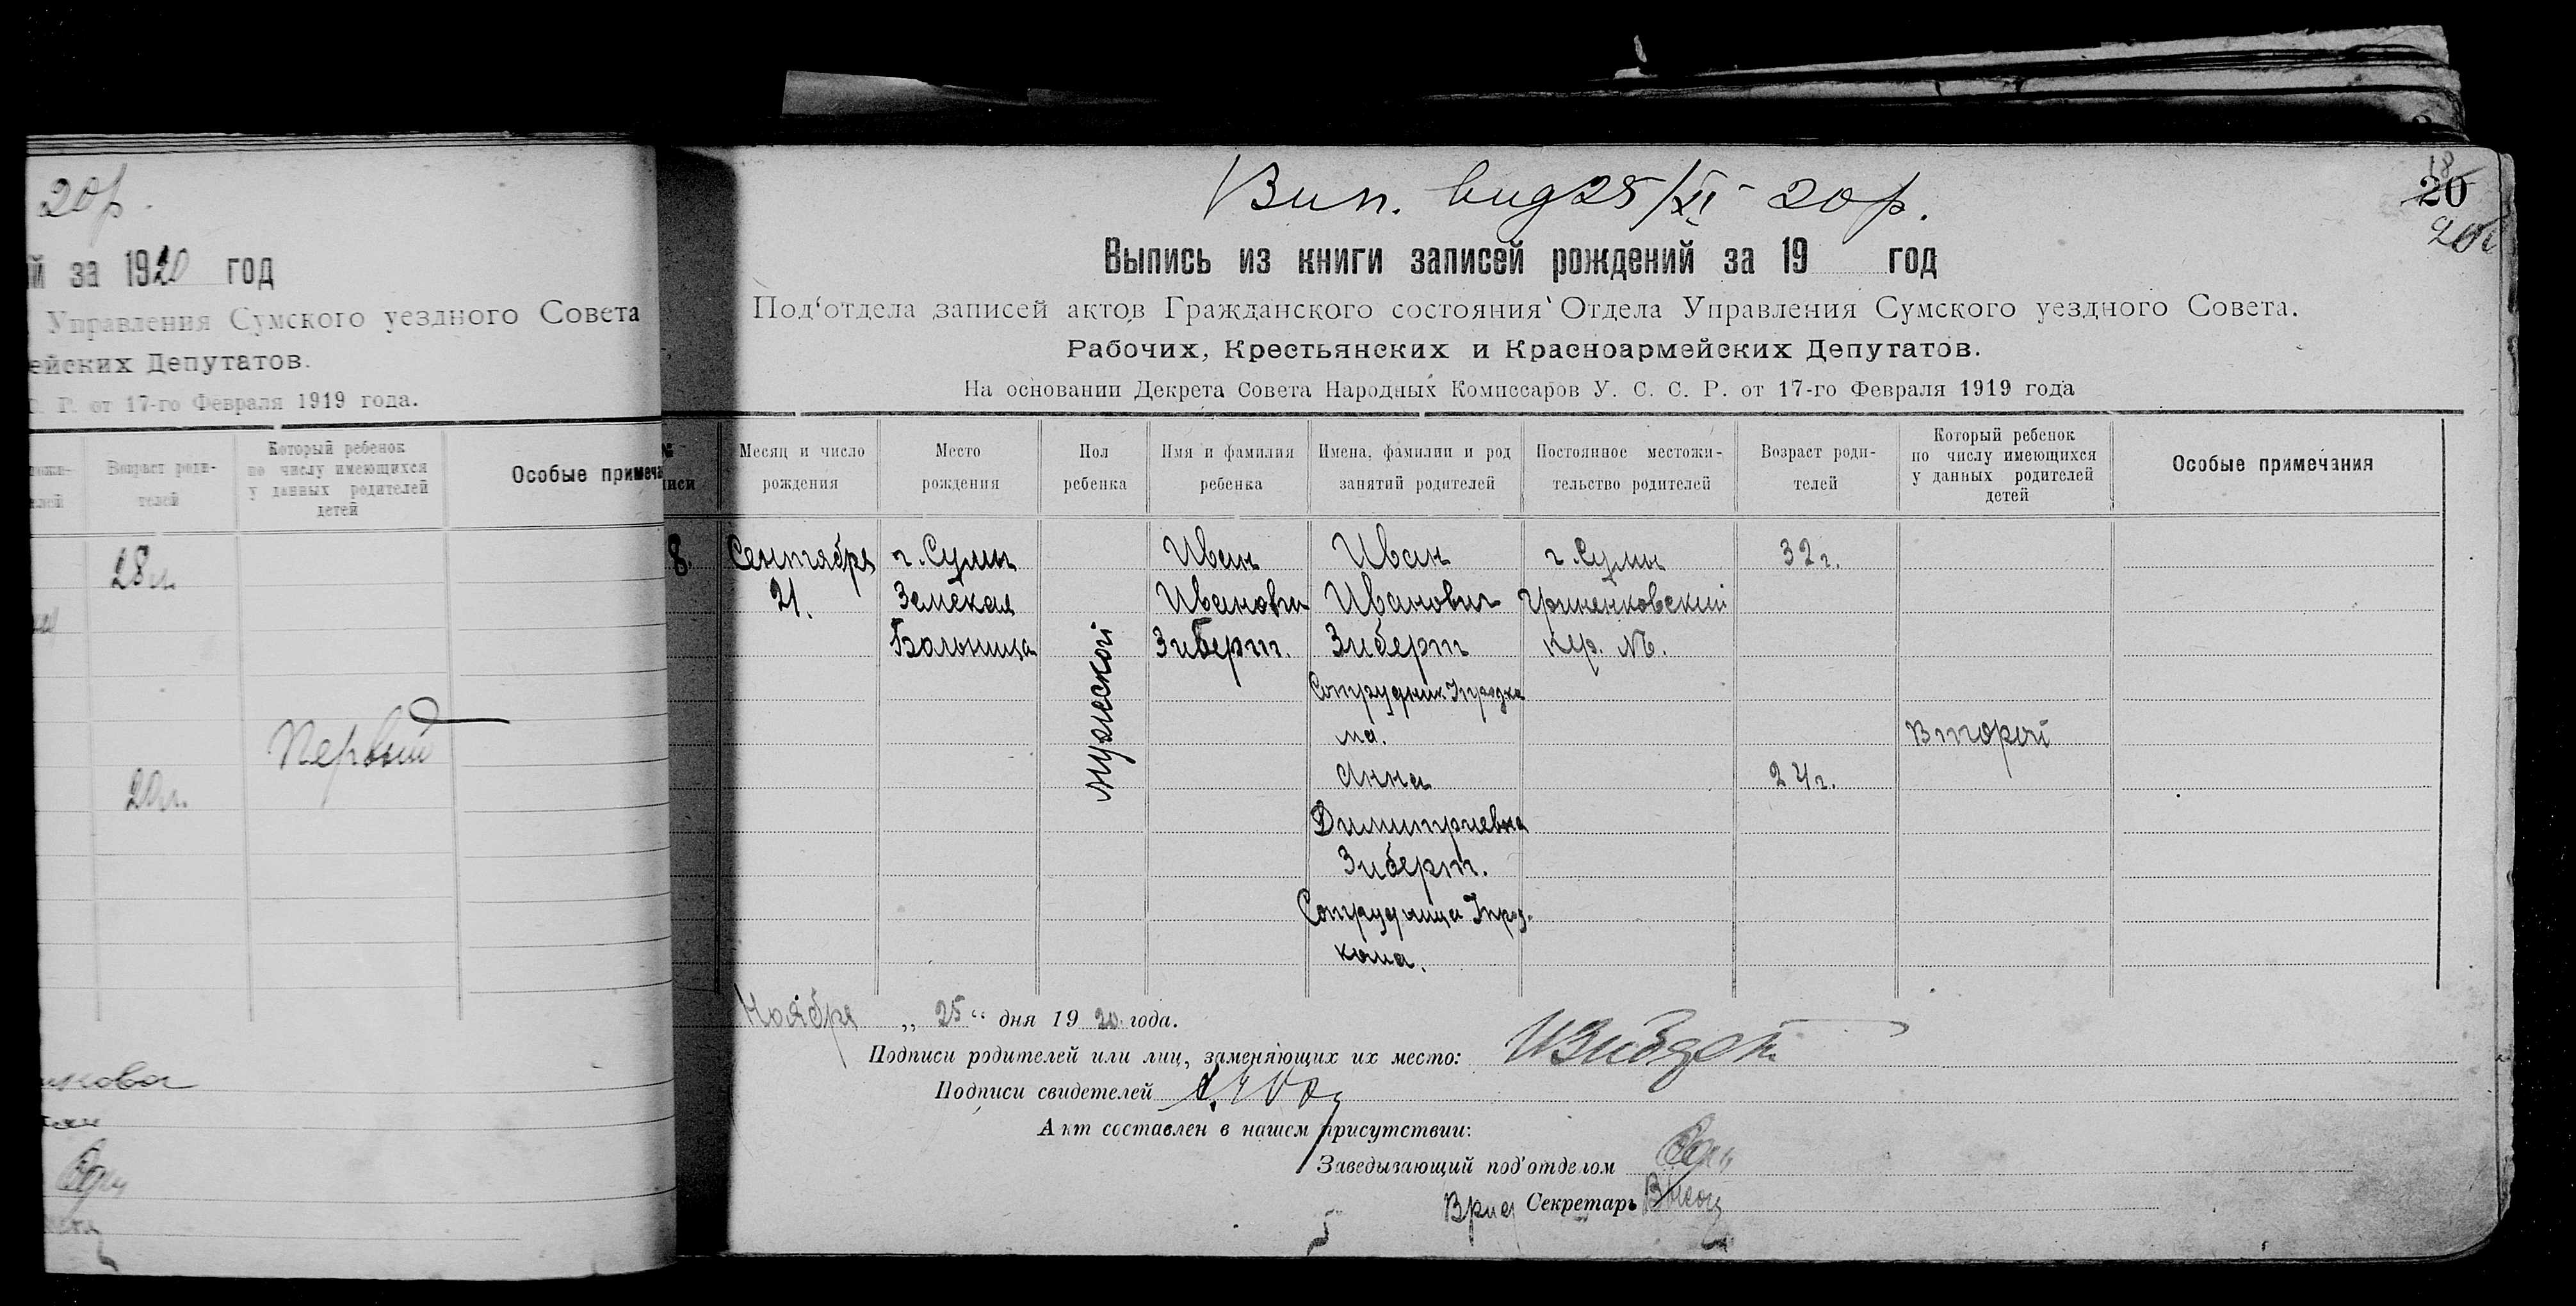 20р.
й за 1920 год
Управления Сумского уездного Совета
ейских Депутатов.
Р. от 17-го Февраля 1919 года.
Возраст роди-
телей
Который ребенок
по числу имеющихся
у данных родителей
детей
Особые примеча
28 л.
Первый
20 л.
Вип. від 25/XI 20р.
18
20
20
Выпись из книги записей рождений за 19 год
Под‘отдела записей актов Гражданского состояния Отдела Управления Сумского уездного Совета.
Рабочих, Крестьянских и Красноармейских Депутатов.
На основании Декрета Совета Народных Комиссаров У. С. С. Р. от 17-го Февраля 1919 года
Месяц и число
рождения
Место
рождения
Пол
ребенка
Имя и фамилия
ребенка
Имена, фамилии и род
занятий родителей
Постоянное местожи-
тельство родителей
Возраст роди-
телей
Который ребенок
по числу имеющихся
у данных родителей
детей
Особые примечания
8.
Сентября
21.
г. Сумы
Земская
Больница
мужской
Иван
Иванович
Зиберт.
Иван
Иванович
Зиберт
Сотрудник
ма.
Анна
Димитриевна
Зиберт.
Сотрудница
кома.
г. Сумы
пер. №.
32 г.
24 г.
Второй
Ноября „ 25 “ дня 19 20 года.
Подписи родителей или лиц, заменяющих их место:
Подписи свидетелей
Акт составлен в нашем присутствии:
Заведывающий под‘отделом
Врид Секретарь